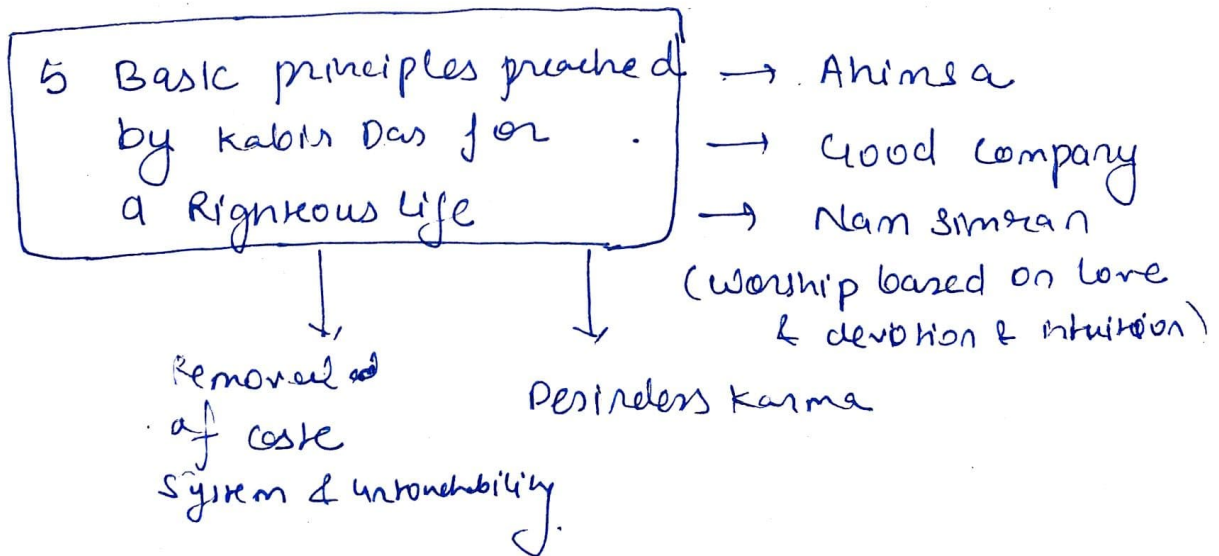 5 Basic principles preached
by Kabir Das for
a Righteous Life
→ Ahimsa
→ Good company
→ Nam simran
(worship based on love
& devotion & intuition)
Removal
of caste
system & untouchability.
Desireless Karma